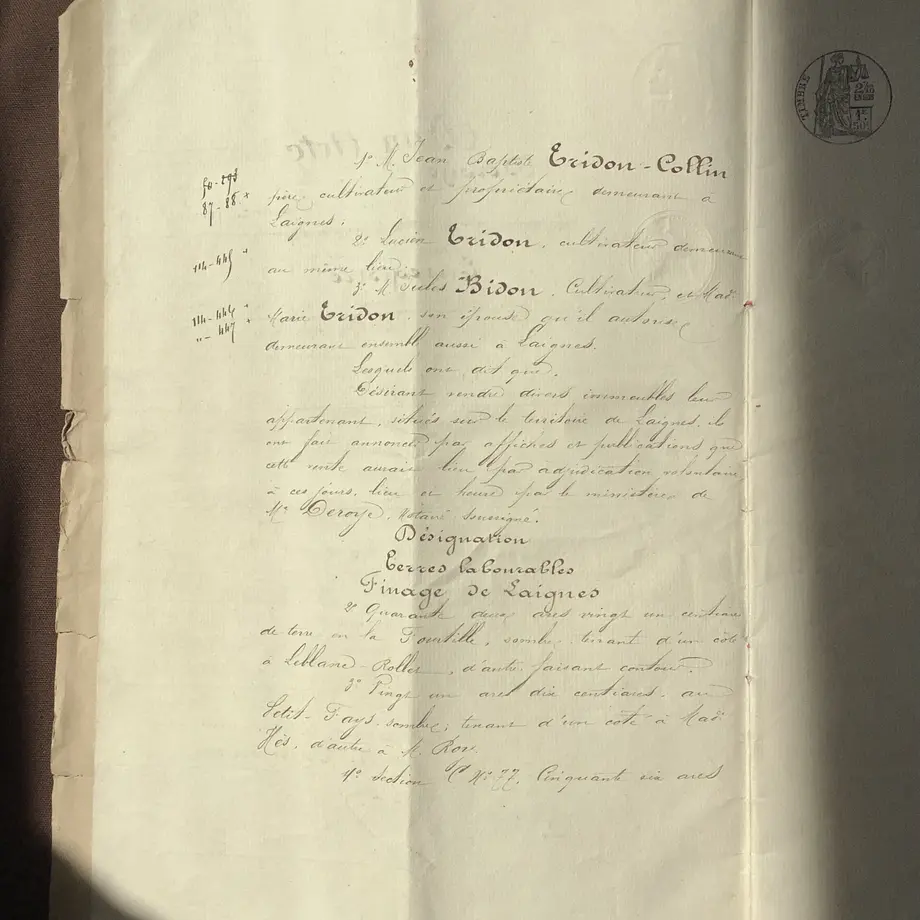 1º M. Jean Baptiste Tridon-Collin
père, cultivateur et propriétaire demeurant à
Laignes.
2º Lucien Tridon, cultivateur demeurant
au même lieu
3º M. Jules Bidon, Cultivateur, et Made
Marie Tridon, son épouse qu'il autorise
demeurant ensemble aussi à Laignes.
Lesquels ont dit que,
Désirant vendre divers immeubles leur
appartenant, situés sur le territoire de Laignes, ils
ont fait annoncer par affiches et publications que
cette vente aurait lieu par adjudication volontaire
à ces jours, lieu et heure par le ministère de
Me Deroye, Notaire soussigné.
Désignation
Terres labourables
Finage de Laignes
2º Quarante deux ares vingt un centiares
de terre en la, sombre, tenant d'un côté
à Leblanc-Rollet, d'autre faisant contour.
3º Vingt un ares dix centiares, au
Petit-Fays, sombre; tenant d'un côté à Made
Hés, d'autre à M.
4º Section C No 77. Cinquante six ares
87-88
114-445
114-446
447
TIMBRE